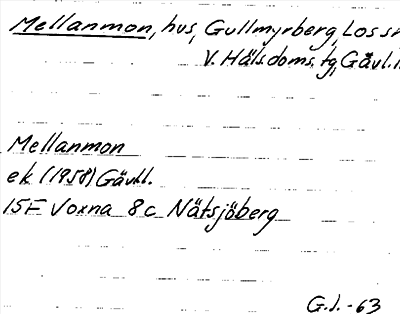 Mellanmon, hus, Gullmyrberg, Los sn
V. Hälsdoms. tg, Gävl.l.
Mellanmon
ek (1958) Gävl.l.
15F Voxna 8c Nätsjöberg
G.J. -63